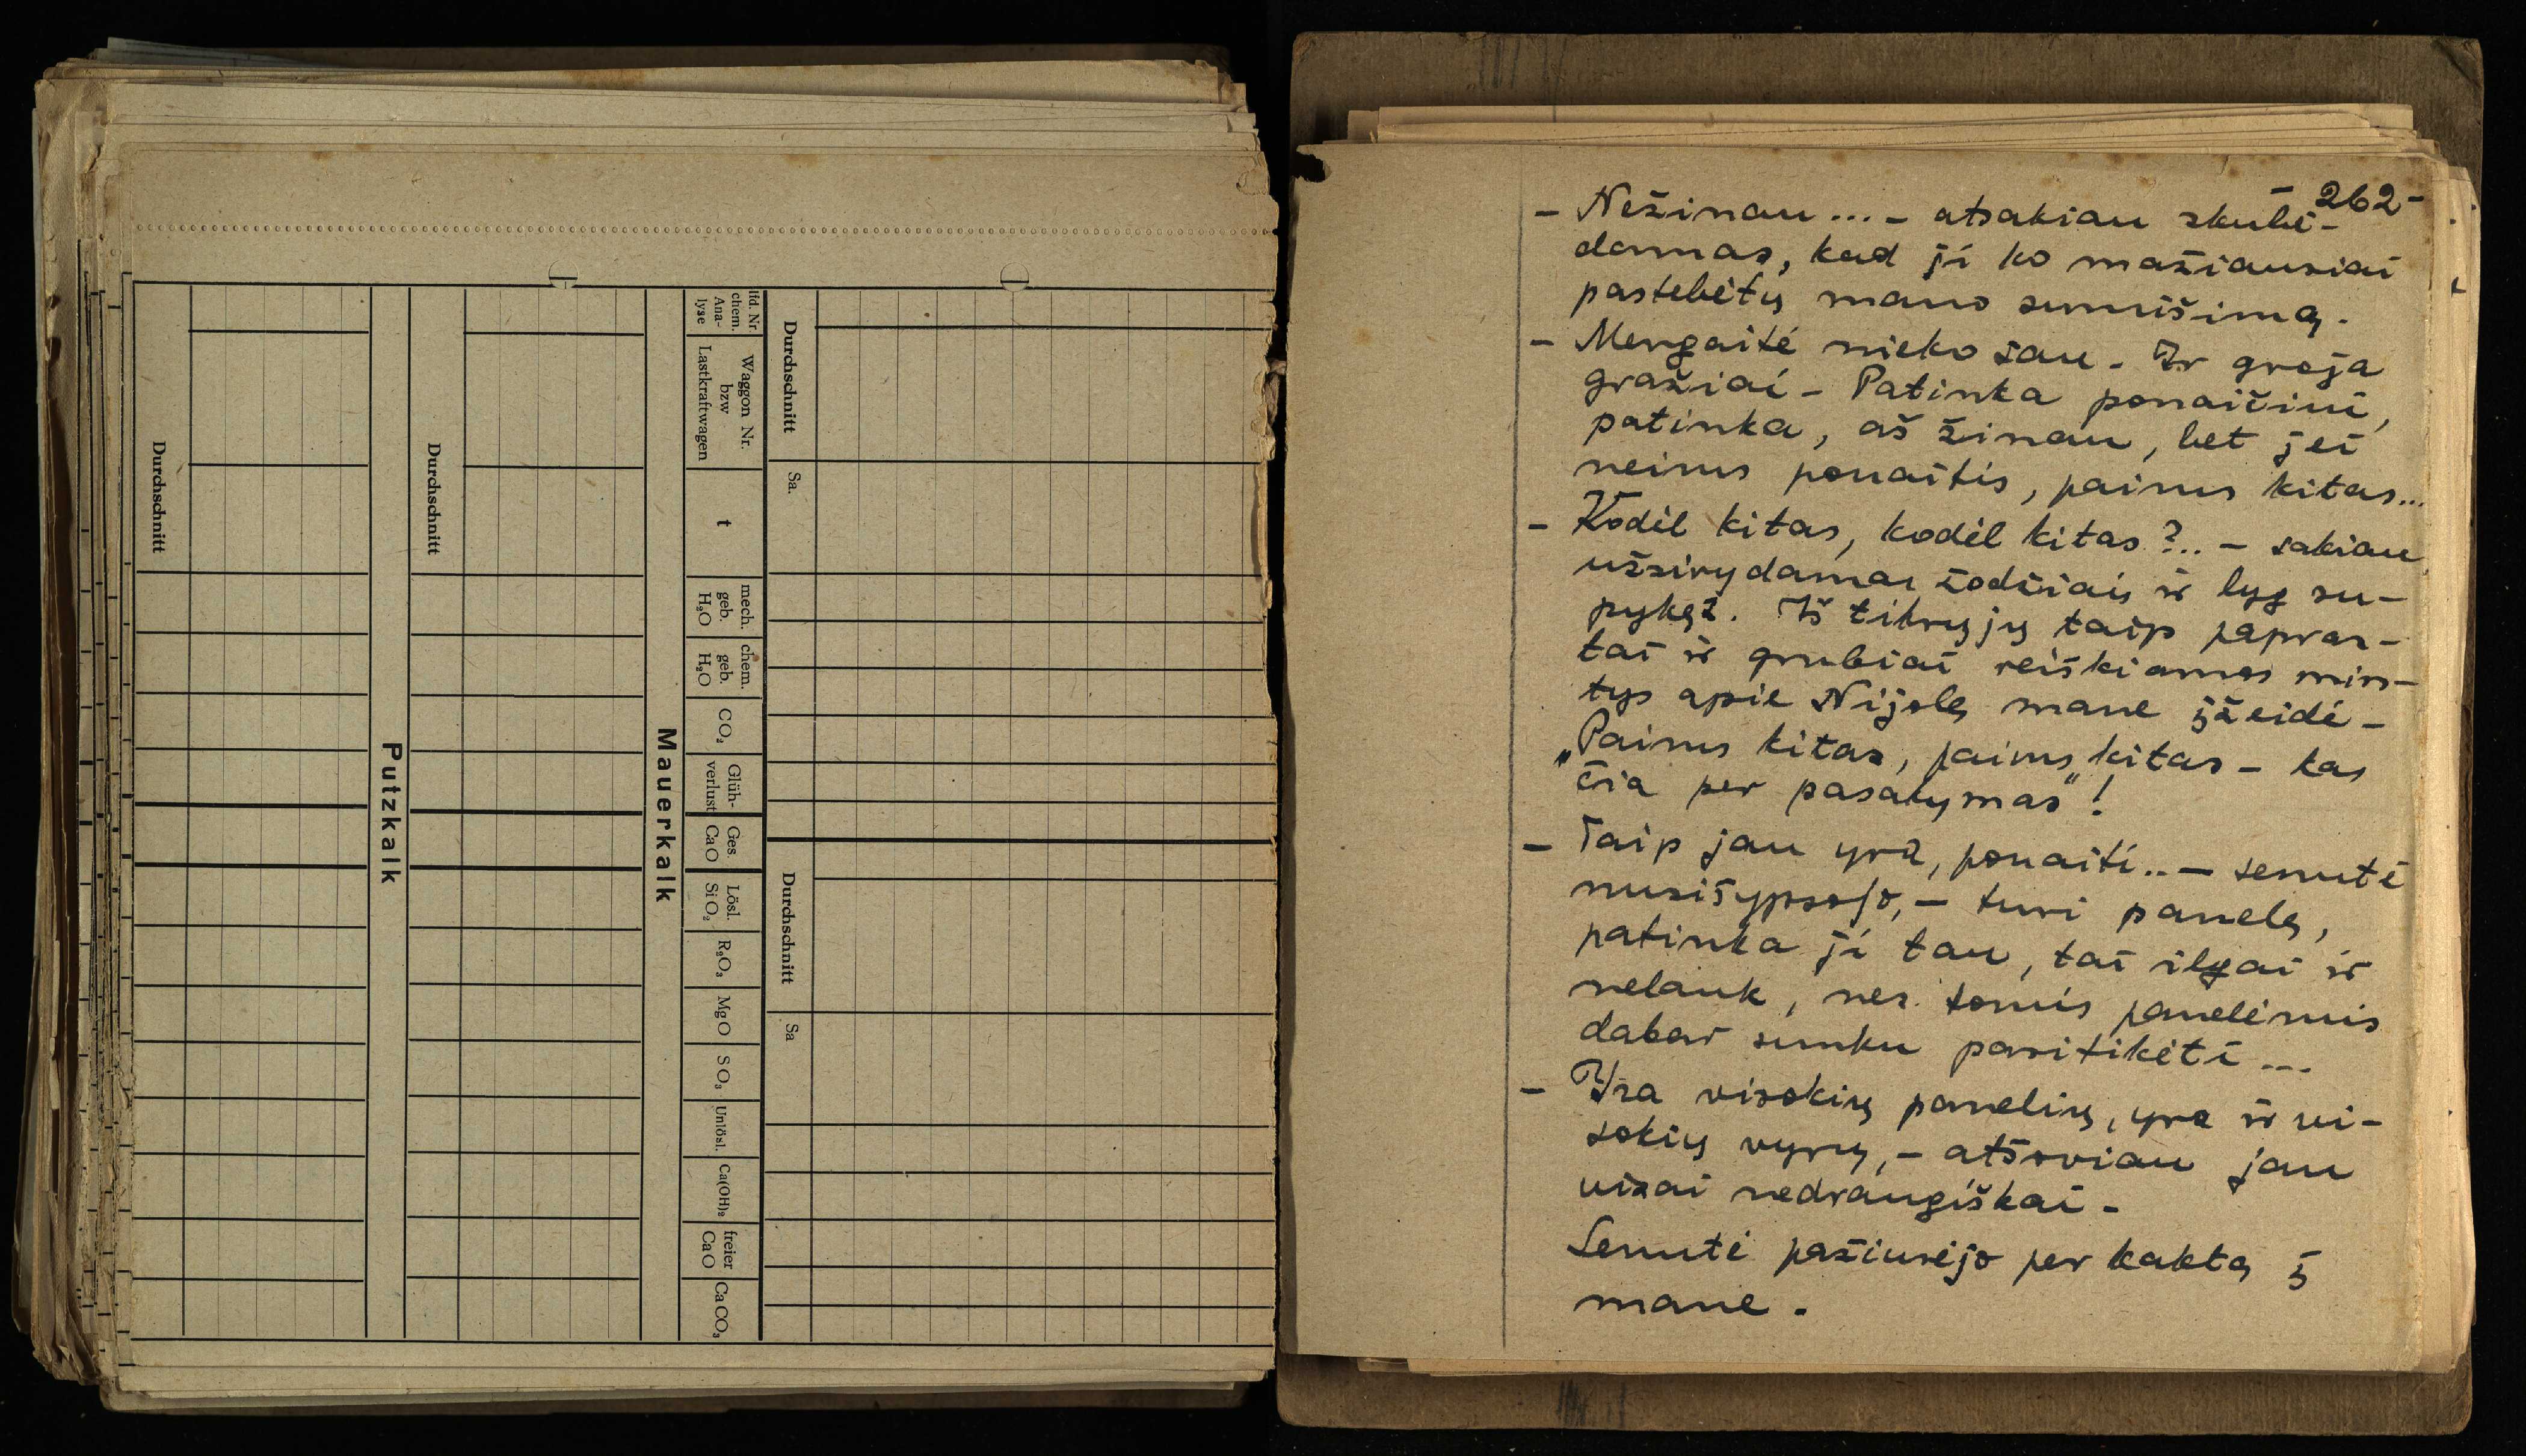 Durchschnitt
Putzkalk
Durchschnitt
Mauerkalk
lfd. Nr.
chem.
Ana-
lyse
Waggon Nr.
bzw
Lastkraftwagen
t
mech.
geb.
H₂O
chem.
geb.
H₂O
CO₂
Glüh-
verlust
Ges
CaO
Lösl.
SiO₂
R₂O₃
MgO
SO₃
Unlösl.
Ca(OH)₂
freier
CaO
CaCO₃
Durchschnitt
Sa.
Durchschnitt
Sa
- 262 -
- Nežinau... - atsakiau skubė-
damas, kad ji ko mažiausiai
pastebėtų mano sumišimą.
- Mergaitė nieko sau. Ir groja
gražiai. Patinka ponaičiui,
patinka, aš žinau, bet jei
neims ponaitis, paims kitas...
- Kodėl kitas, kodėl kitas?.. - sakiau
užsirydamas žodžiais ir lyg su-
pykęs. Iš tikrųjų taip papras-
tai ir grubiai reiškiamos min-
tys apie Nijolę mane įžeidė.
„Paims kitas, paims kitas - kas
čia per pasakymas"!
- Taip jau yra, ponaiti.. - senutė
nusišypsojo, - turi panelę,
patinka ji tau, tai ilgai ir
nelauk, nes tomis panelėmis
dabar sunku pasitikėti...
- Yra visokių panelių, yra ir vi-
sokių vyrų, - atšoviau jau
visai nedraugiškai.
Senutė pažiurėjo per kaktą į
mane.